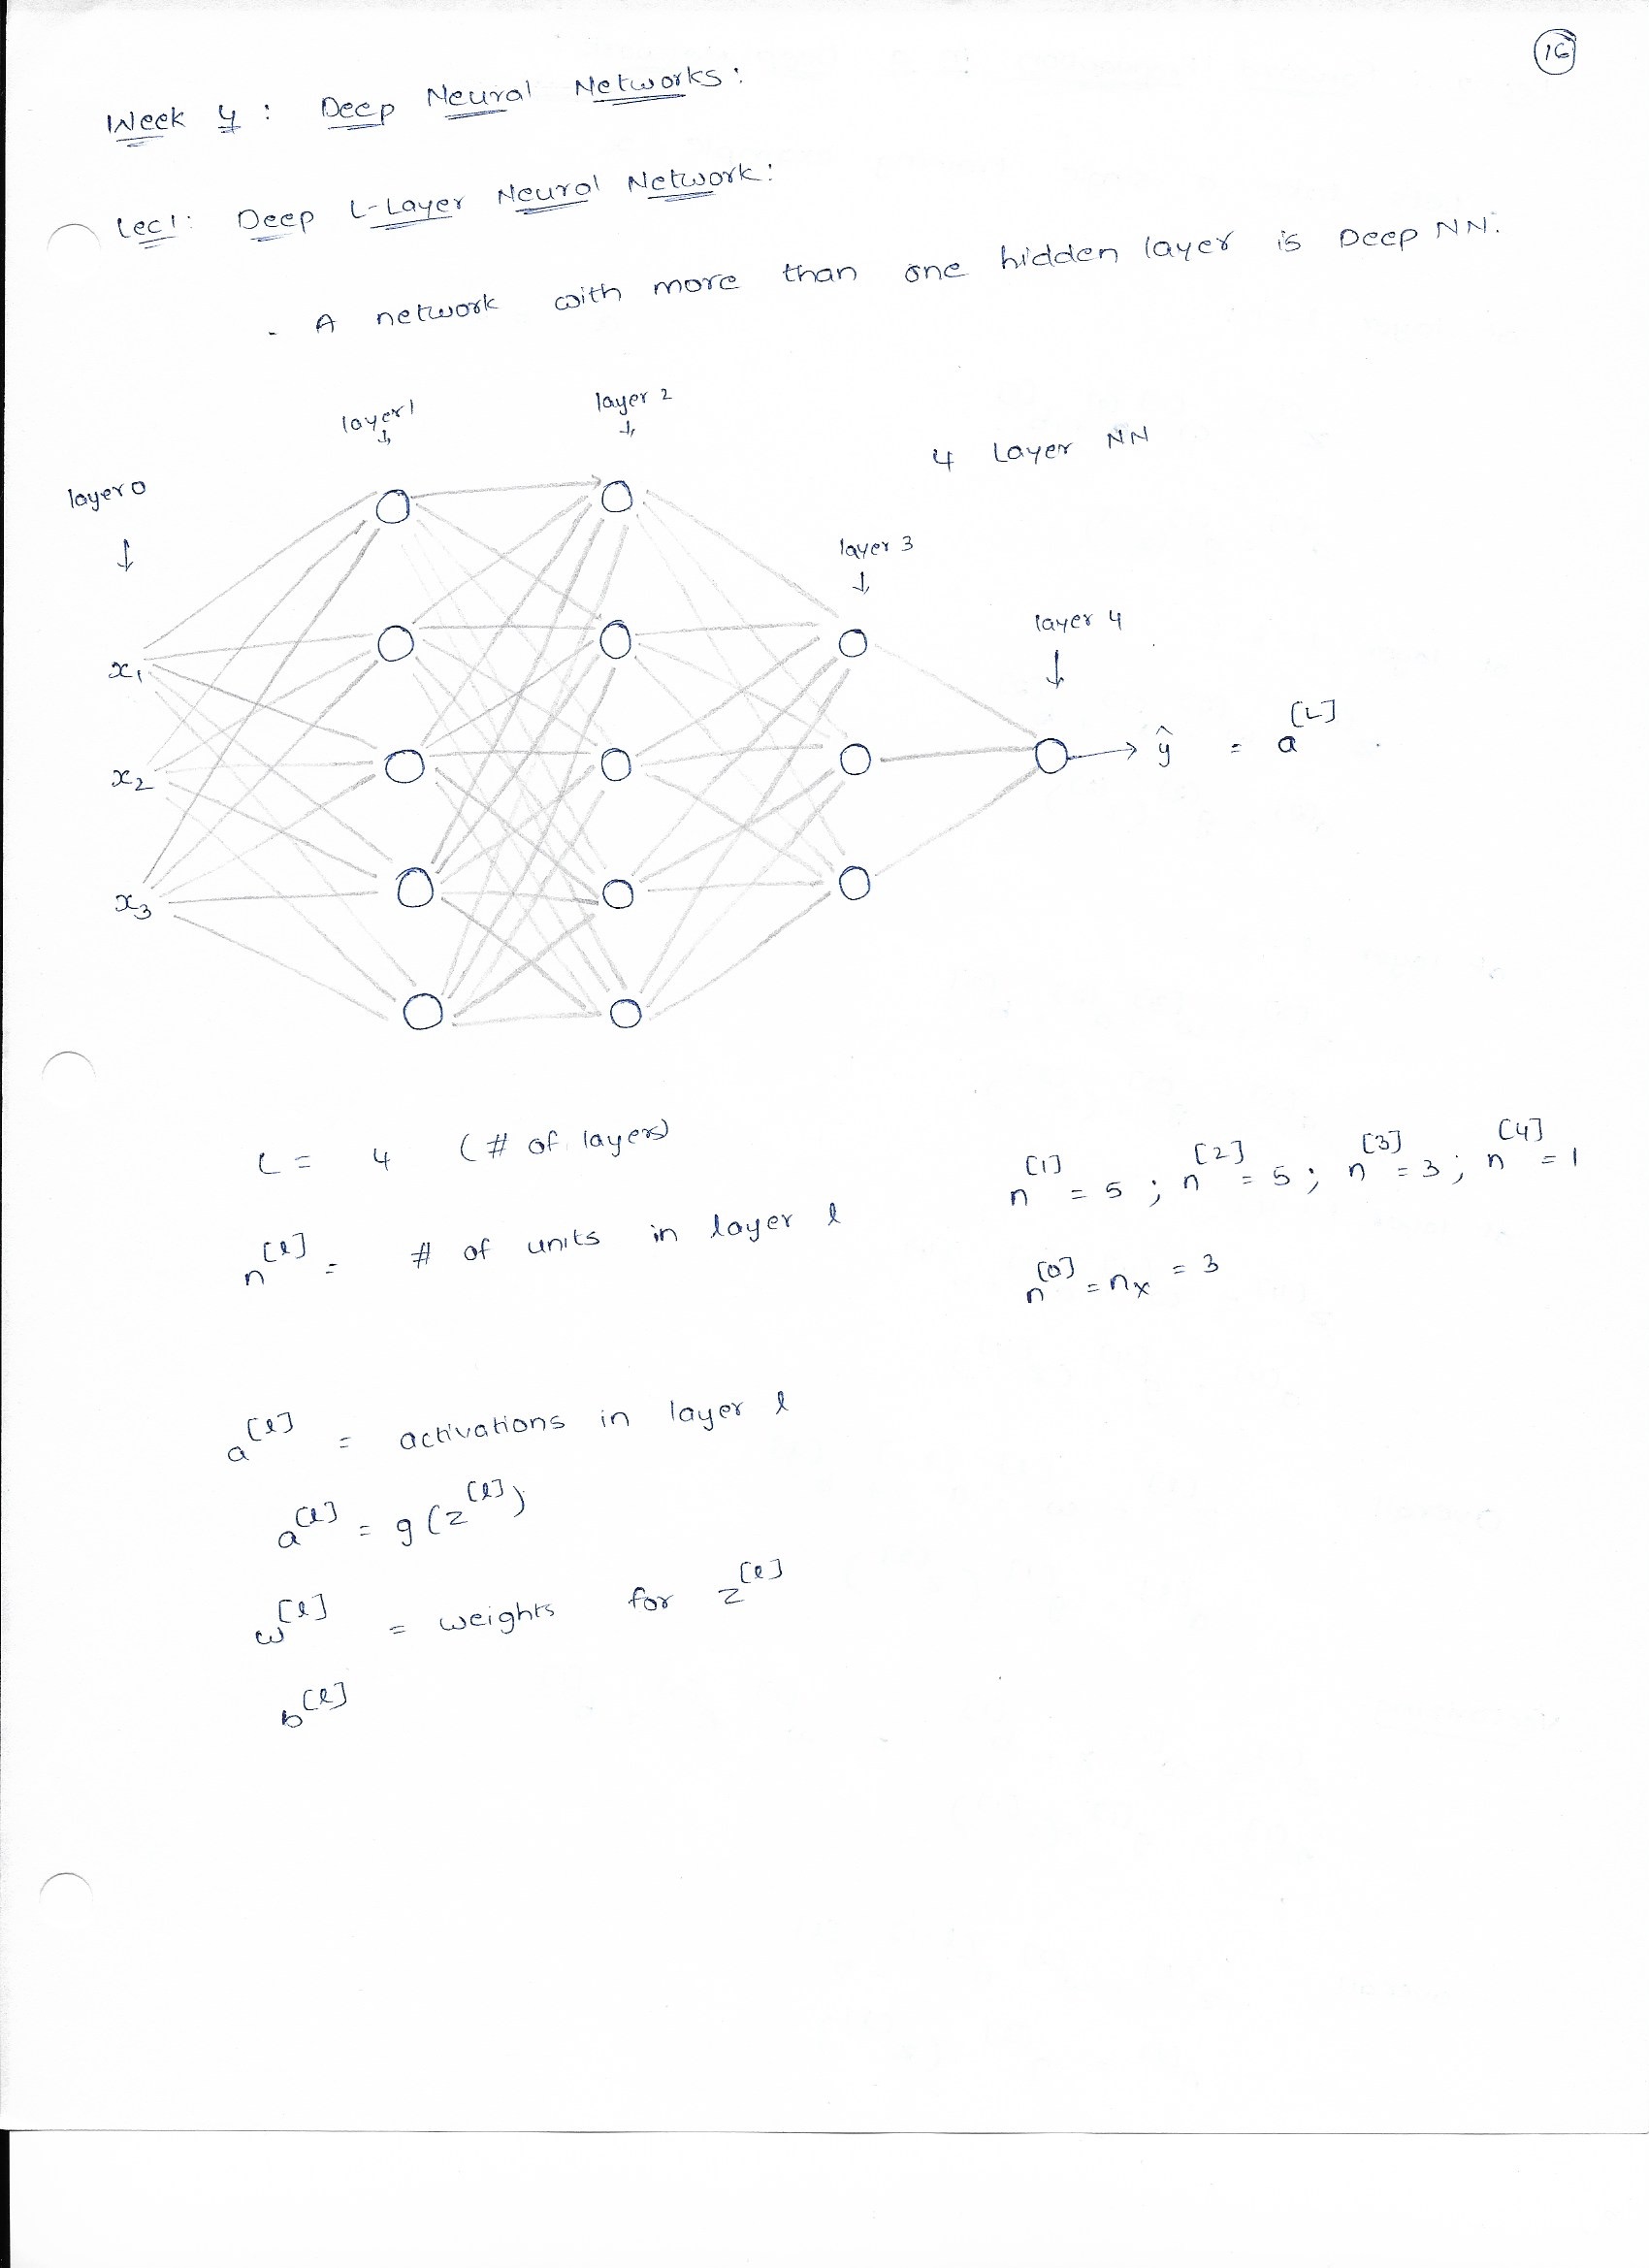 16
Week 4 : Deep Neural Networks :
Lec1: Deep L-Layer Neural Network:
- A network with more than one hidden layer is Deep NN.
layer 0
layer 1
layer 2
4 Layer NN
layer 3
layer 4
x₁
x₂
x₃
ŷ = a^[L]
L = 4 (# of layers)
n^[l] = # of units in layer l
n^[1] = 5 ; n^[2] = 5 ; n^[3] = 3 ; n^[4] = 1
n^[0] = nₓ = 3
a^[l] = activations in layer l
a^[l] = g(z^[l])
w^[l] = weights for z^[l]
b^[l]